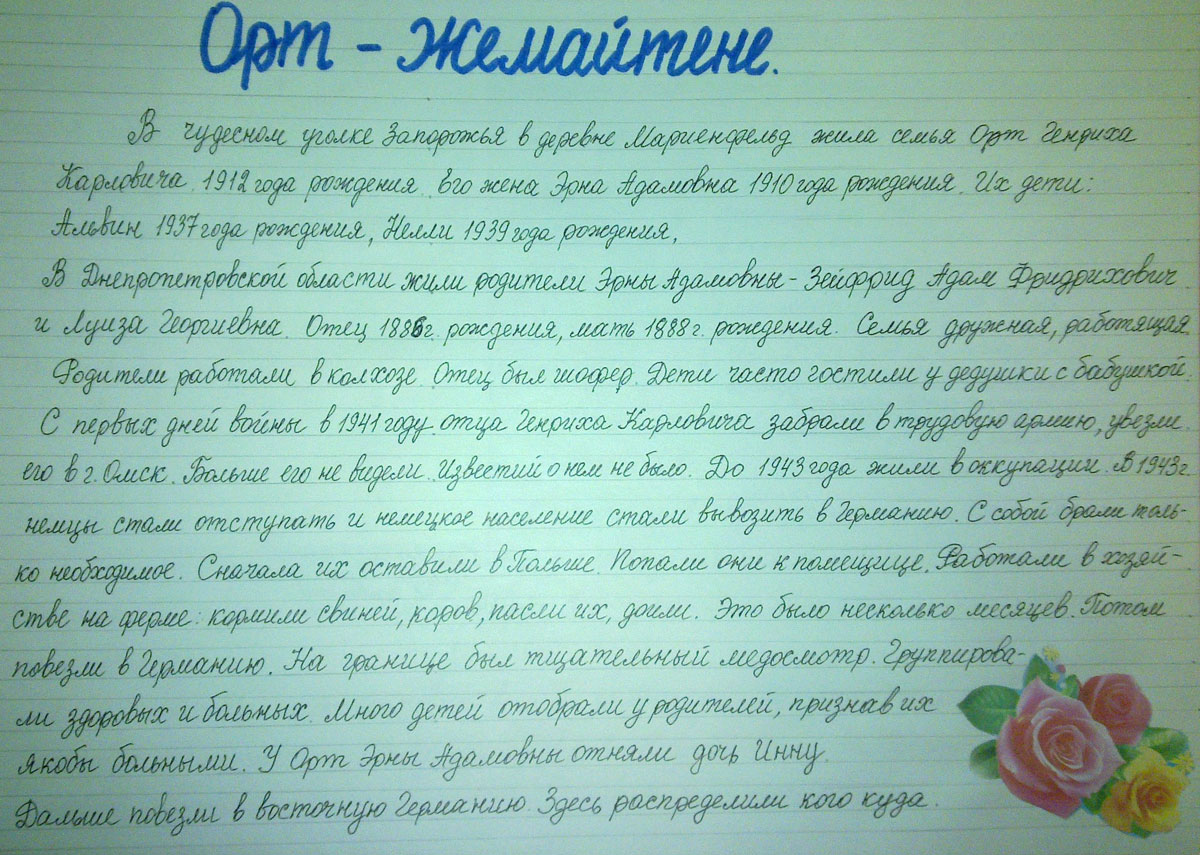 Орт - Жемайтене.
В чудесном уголке Запорожья в деревне Мариенфельд жила семья Орт Генриха
Карловича 1912 года рождения. Его жена Эрна Адамовна 1910 года рождения. Их дети:
Альвин 1937 года рождения, Нелли 1939 года рождения,
В Днепропетровской области жили родители Эрны Адамовны - Зейфрид Адам Фридрихович
и Луиза Георгиевна. Отец 1886г. рождения, мать 1888г. рождения. Семья дружная, работящая.
Родители работали в колхозе. Отец был шофер. Дети часто гостили у дедушки с бабушкой.
С первых дней войны в 1941 году отца Генриха Карловича забрали в трудовую армию, увезли
его в г. Омск. Больше его не видели. Известий о нем не было. До 1943 года жили в оккупации. В 1943г.
немцы стали отступать и немецкое население стали вывозить в Германию. С собой брали толь-
ко необходимое. Сначала их оставили в Польше. Попали они к помещице. Работали в хозяй-
стве на ферме: кормили свиней, коров, пасли их, доили. Это было несколько месяцев. Потом
повезли в Германию. На границе был тщательный медосмотр. Группирова-
ли здоровых и больных. Много детей отобрали у родителей, признав их
якобы больными. У Орт Эрны Адамовны отняли дочь Инну.
Дальше повезли в восточную Германию. Здесь распределили кого куда.